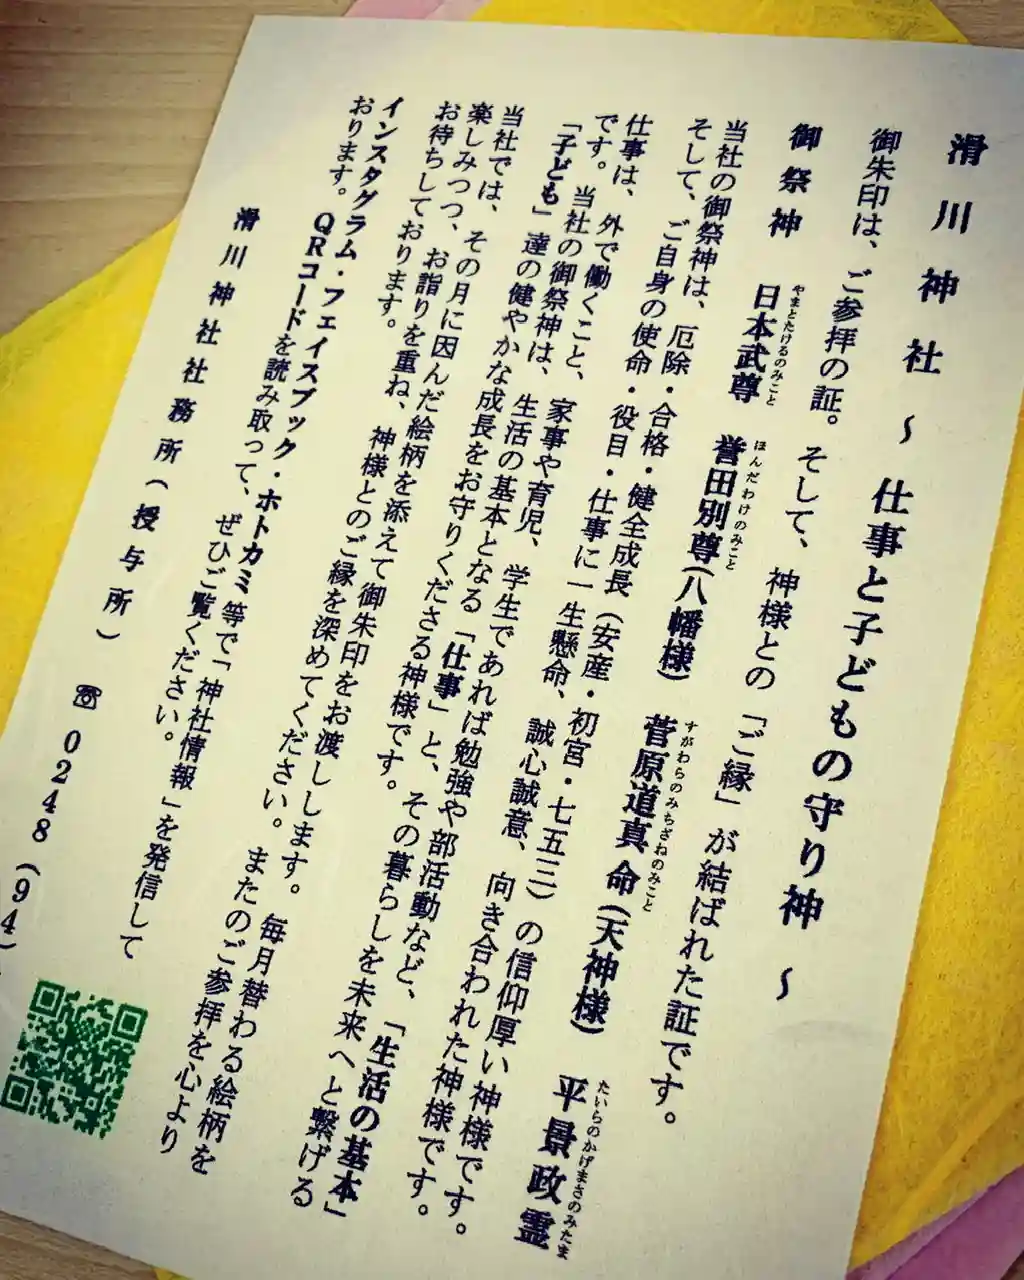 滑川神社 ～ 仕事と子どもの守り神 ～
御朱印は、ご参拝の証。そして、神様との「ご縁」が結ばれた証です。
御祭神 日本武尊 誉田別尊(八幡様) 菅原道真命(天神様) 平景政霊
やまとたけるのみこと ほんだわけのみこと すがわらのみちざねのみこと たいらのかげまさのみたま
当社の御祭神は、厄除・合格・健全成長(安産・初宮・七五三)の信仰厚い神様です。
そして、ご自身の使命・役目・仕事に一生懸命、誠心誠意、向き合われた神様です。
仕事は、外で働くこと、家事や育児、学生であれば勉強や部活動など、「生活の基本」
です。当社の御祭神は、生活の基本となる「仕事」と、その暮らしを未来へと繋げる
「子ども」達の健やかな成長をお守りくださる神様です。
当社では、その月に因んだ絵柄を添えて御朱印をお渡しします。毎月替わる絵柄を
楽しみつつ、お詣りを重ね、神様とのご縁を深めてください。またのご参拝を心より
お待ちしております。
インスタグラム・フェイスブック・ホトカミ等で「神社情報」を発信して
おります。QRコードを読み取って、ぜひご覧ください。
滑川神社社務所(授与所) ☏0248(94)